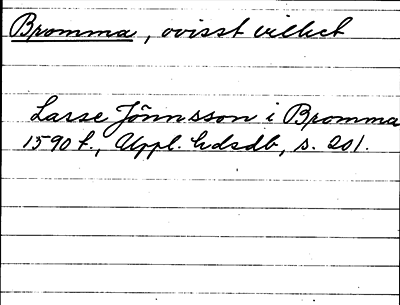 Bromma, ovisst vilket
Larse Jönnsson i Bromma
1590 f., Uppl. hdsdb, s. 201.